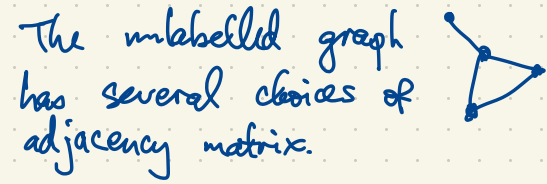 The unlabelled graph
has several choices of
adjacency matrix.